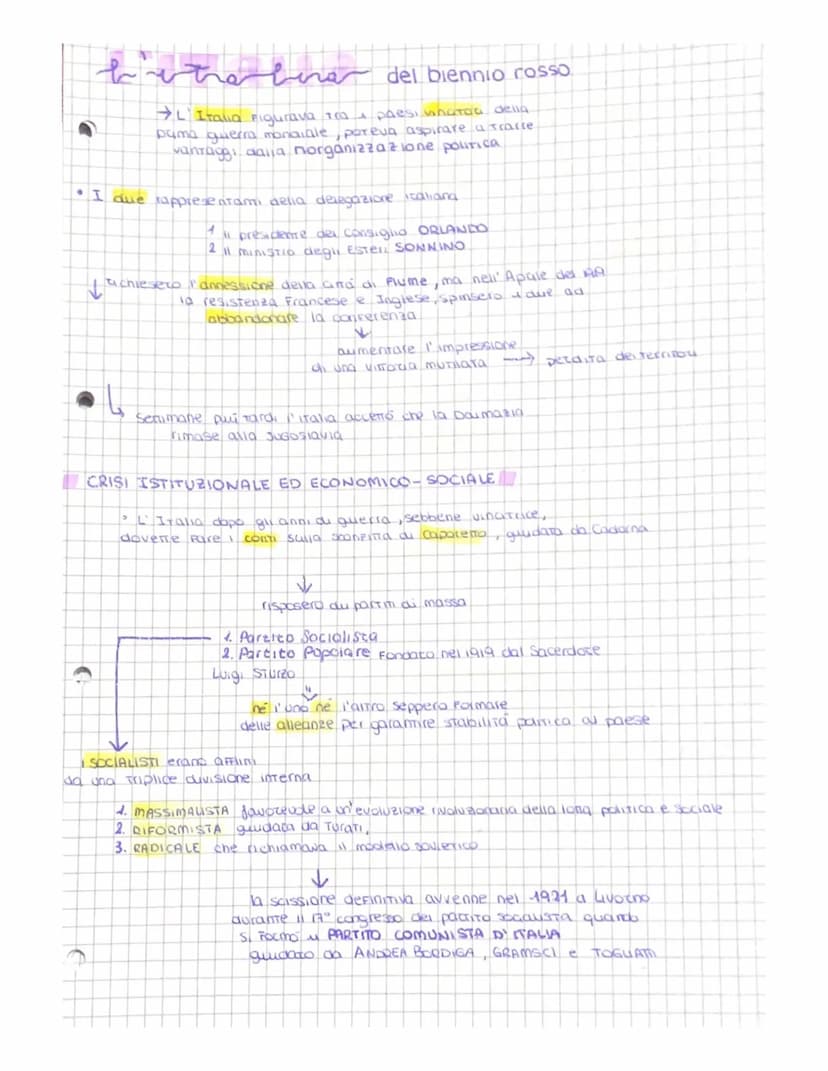 L'italia del biennio rosso
→ L'Italia figurava tra i paesi vincitori della
prima guerra mondiale, poteva aspirare a trarre
vantaggi dalla riorganizzazione politica
• I due rappresentanti della delegazione italiana
1 il presidente del Consiglio ORLANDO
2 il ministro degli Esteri SONNINO
↓ richiesero l'annessione della città di Fiume, ma nell'Aprile del
la resistenza Francese e Inglese, spinsero i due ad
abbandonare la conferenza
↓
aumentare l'impressione
di una vittoria mutilata → perdita dei territori
↳ settimane più tardi l'Italia accettò che la Dalmazia
rimase alla Jugoslavia
CRISI ISTITUZIONALE ED ECONOMICO-SOCIALE
• L'Italia dopo gli anni di guerra, sebbene vincitrice,
dovette fare i conti sulla sconfitta di Caporetto, guidata da Cadorna
↓
risposero du partiti di massa
1. Partito Socialista
2. Partito Popolare Fondato nel 1919 dal Sacerdote
Luigi Sturzo
↓
né l'uno né l'altro seppero formare
delle alleanze per garantire stabilità politica al paese
i SOCIALISTI erano affini
da una triplice divisione interna
1. MASSIMALISTA favorevole a un'evoluzione rivoluzionaria della lotta politica e sociale
2. RIFORMISTA guidata da Turati,
3. RADICALE che richiamava il modello sovietico
↓
la scissione definitiva avvenne nel 1921 a Livorno
durante il 17° congresso del partito socialista quando
si formò il PARTITO COMUNISTA D'ITALIA
guidato da ANDREA BORDIGA, GRAMSCI e TOGLIATTI